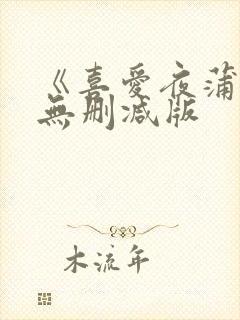 《喜愛夜蒲
無刪減版
木流年